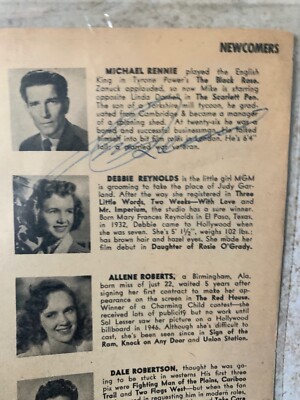 NEWCOMERS
MICHAEL RENNIE played the English
King in Tyrone Power's The Black Rose.
Zanuck applauded, so now Mike is starring
opposite Linda Darnell in The Scarlet Pen.
The son of a Yorkshire mill tycoon, he grad-
uated from Cambridge & became a manager
of a cleaning shed. At twenty-six he was a
bored and successful businessman. He talked
himself into bit film roles in London. He's 6'4"
tall, a married war veteran.
DEBBIE REYNOLDS is the little girl MGM
is grooming to take the place of Judy Gar-
land. After the way she registered in Three
Little Words, Two Weeks—With Love and
Mr. Imperium, the studio has a sure winner.
Born Mary Frances Reynolds in El Paso, Texas,
in 1932, Debbie came to Hollywood when
she was seven. She's 5' 1½", weighs 102 lbs.;
has brown hair and hazel eyes. She made her
film debut in Daughter of Rosie O'Grady.
ALLENE ROBERTS, a Birmingham, Ala.
born miss of just 22, waited 5 years after
signing her first contract to make her ap-
pearance on the screen in The Red House.
Winner of a Charming Child contest—she
received lots of publicity but no work until
Sol Lesser saw her picture on a Hollywood
billboard in 1946. Although she's difficult
to cast, she's been seen since in Sign of the
Ram, Knock on Any Door and Union Station.
DALE ROBERTSON, thought he was ga-
ing to be stuck in westerns. His first three
were Fighting Man of the Plains, Cariboo
Trail and Two Flags West—but when the fan
in requesting him in more modern
Take Care